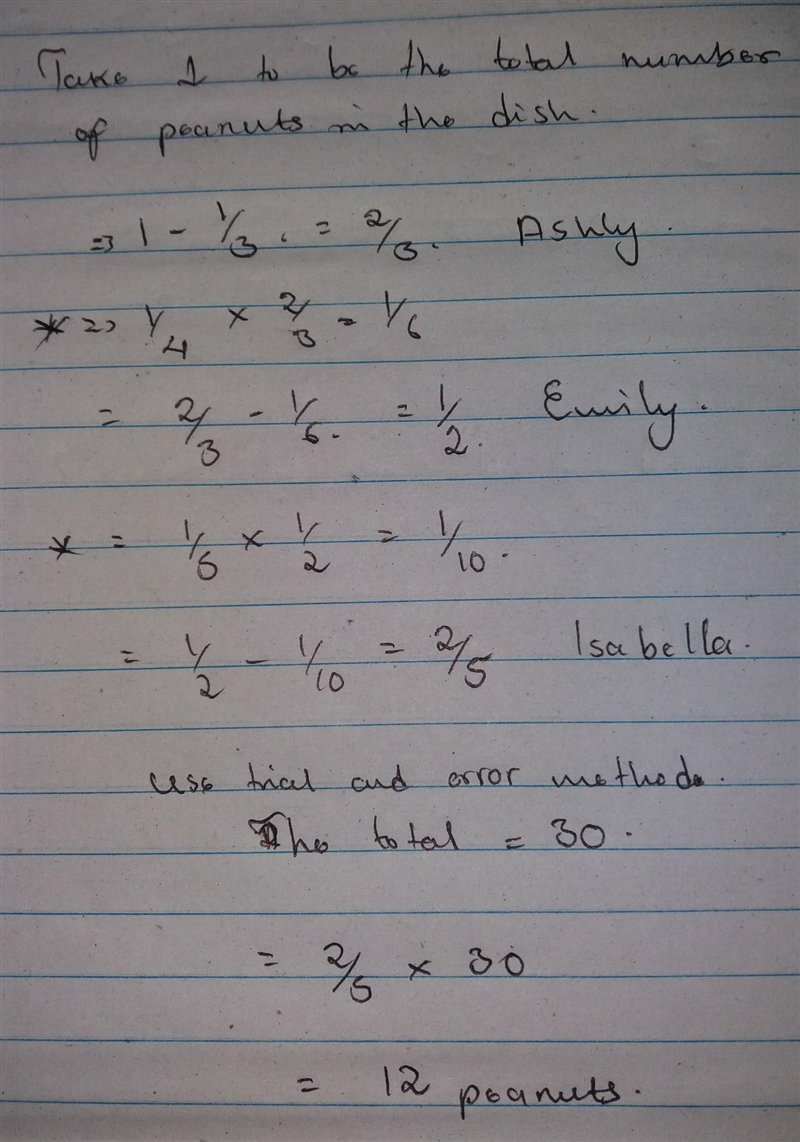 Take 1 to be the total number
of peanuts in the dish.
=> 1 - 1/3 . = 2/3. Ashly.
* => 1/4 × 2/3 = 1/6
= 2/3 - 1/6. = 1/2. Emily.
* = 1/5 × 1/2 = 1/10.
= 1/2 - 1/10 = 2/5 Isabella.
Use trial and error method.
The total = 30.
= 2/5 × 30
= 12 peanuts.